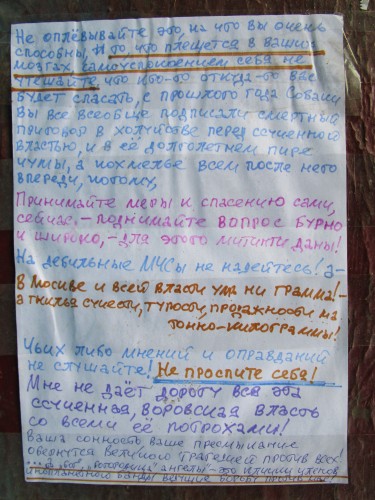 Не оплёвывайте это, на что вы очень
способны, и то, что плещется в ваших
мозгах самоуспокоением себя не
утешайте, что кто-то откуда-то вас
будет спасать, с прошлого года собаки
вы все всеобще подписали смертный
приговор в холуйстве перед ссученной
властью, и в её долголетнем пире
чумы, а похмелье всем после него
впереди, потому,
Принимайте меры к спасению сами,
сейчас, – поднимайте вопрос бурно
и широко, – для этого митинги даны!
На дебильные МЧСы не надейтесь! а –
В Москве и всей власти ума ни грамма! –
а гнилья счесть, тупости, продажности на
тонно-килограммы!
Чьих либо мнений и оправданий
не слушайте! Не проспите себя!
Мне не даёт дорогу вся эта
ссученная, воровская власть
со всеми её потрохами!
Ваша сонность, ваше пресмыкание
обернутся великой трагедией против всех!
ангелы – это
банды